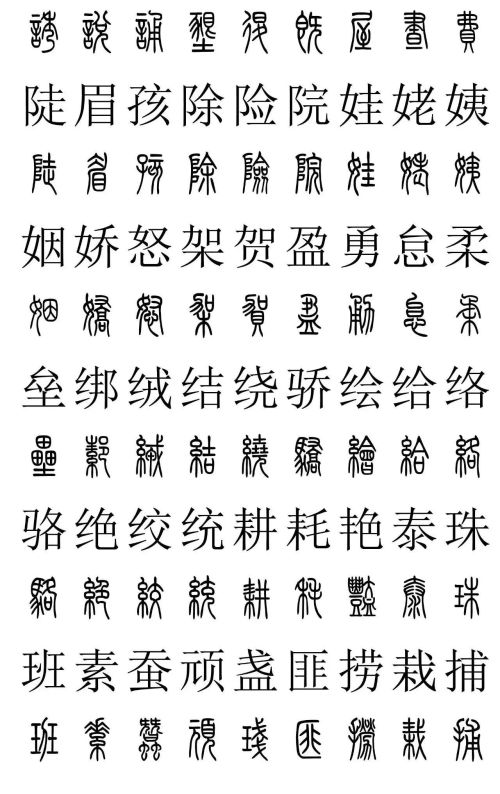 誇 說 誦 墾 退 既 屋 晝 費
陡 眉 孩 除 险 院 娃 姥 姨
陡 眉 孩 除 險 院 娃 姥 姨
姻 娇 怒 架 贺 盈 勇 怠 柔
姻 嬌 怒 架 賀 盈 勇 怠 柔
垒 绑 绒 结 绕 骄 绘 给 络
壘 綁 絨 結 繞 驕 繪 給 絡
骆 绝 绞 统 耕 耗 艳 泰 珠
駱 絕 絞 統 耕 耗 豔 泰 珠
班 素 蚕 顽 盏 匪 捞 栽 捕
班 素 蠶 頑 琖 匪 撈 栽 捕